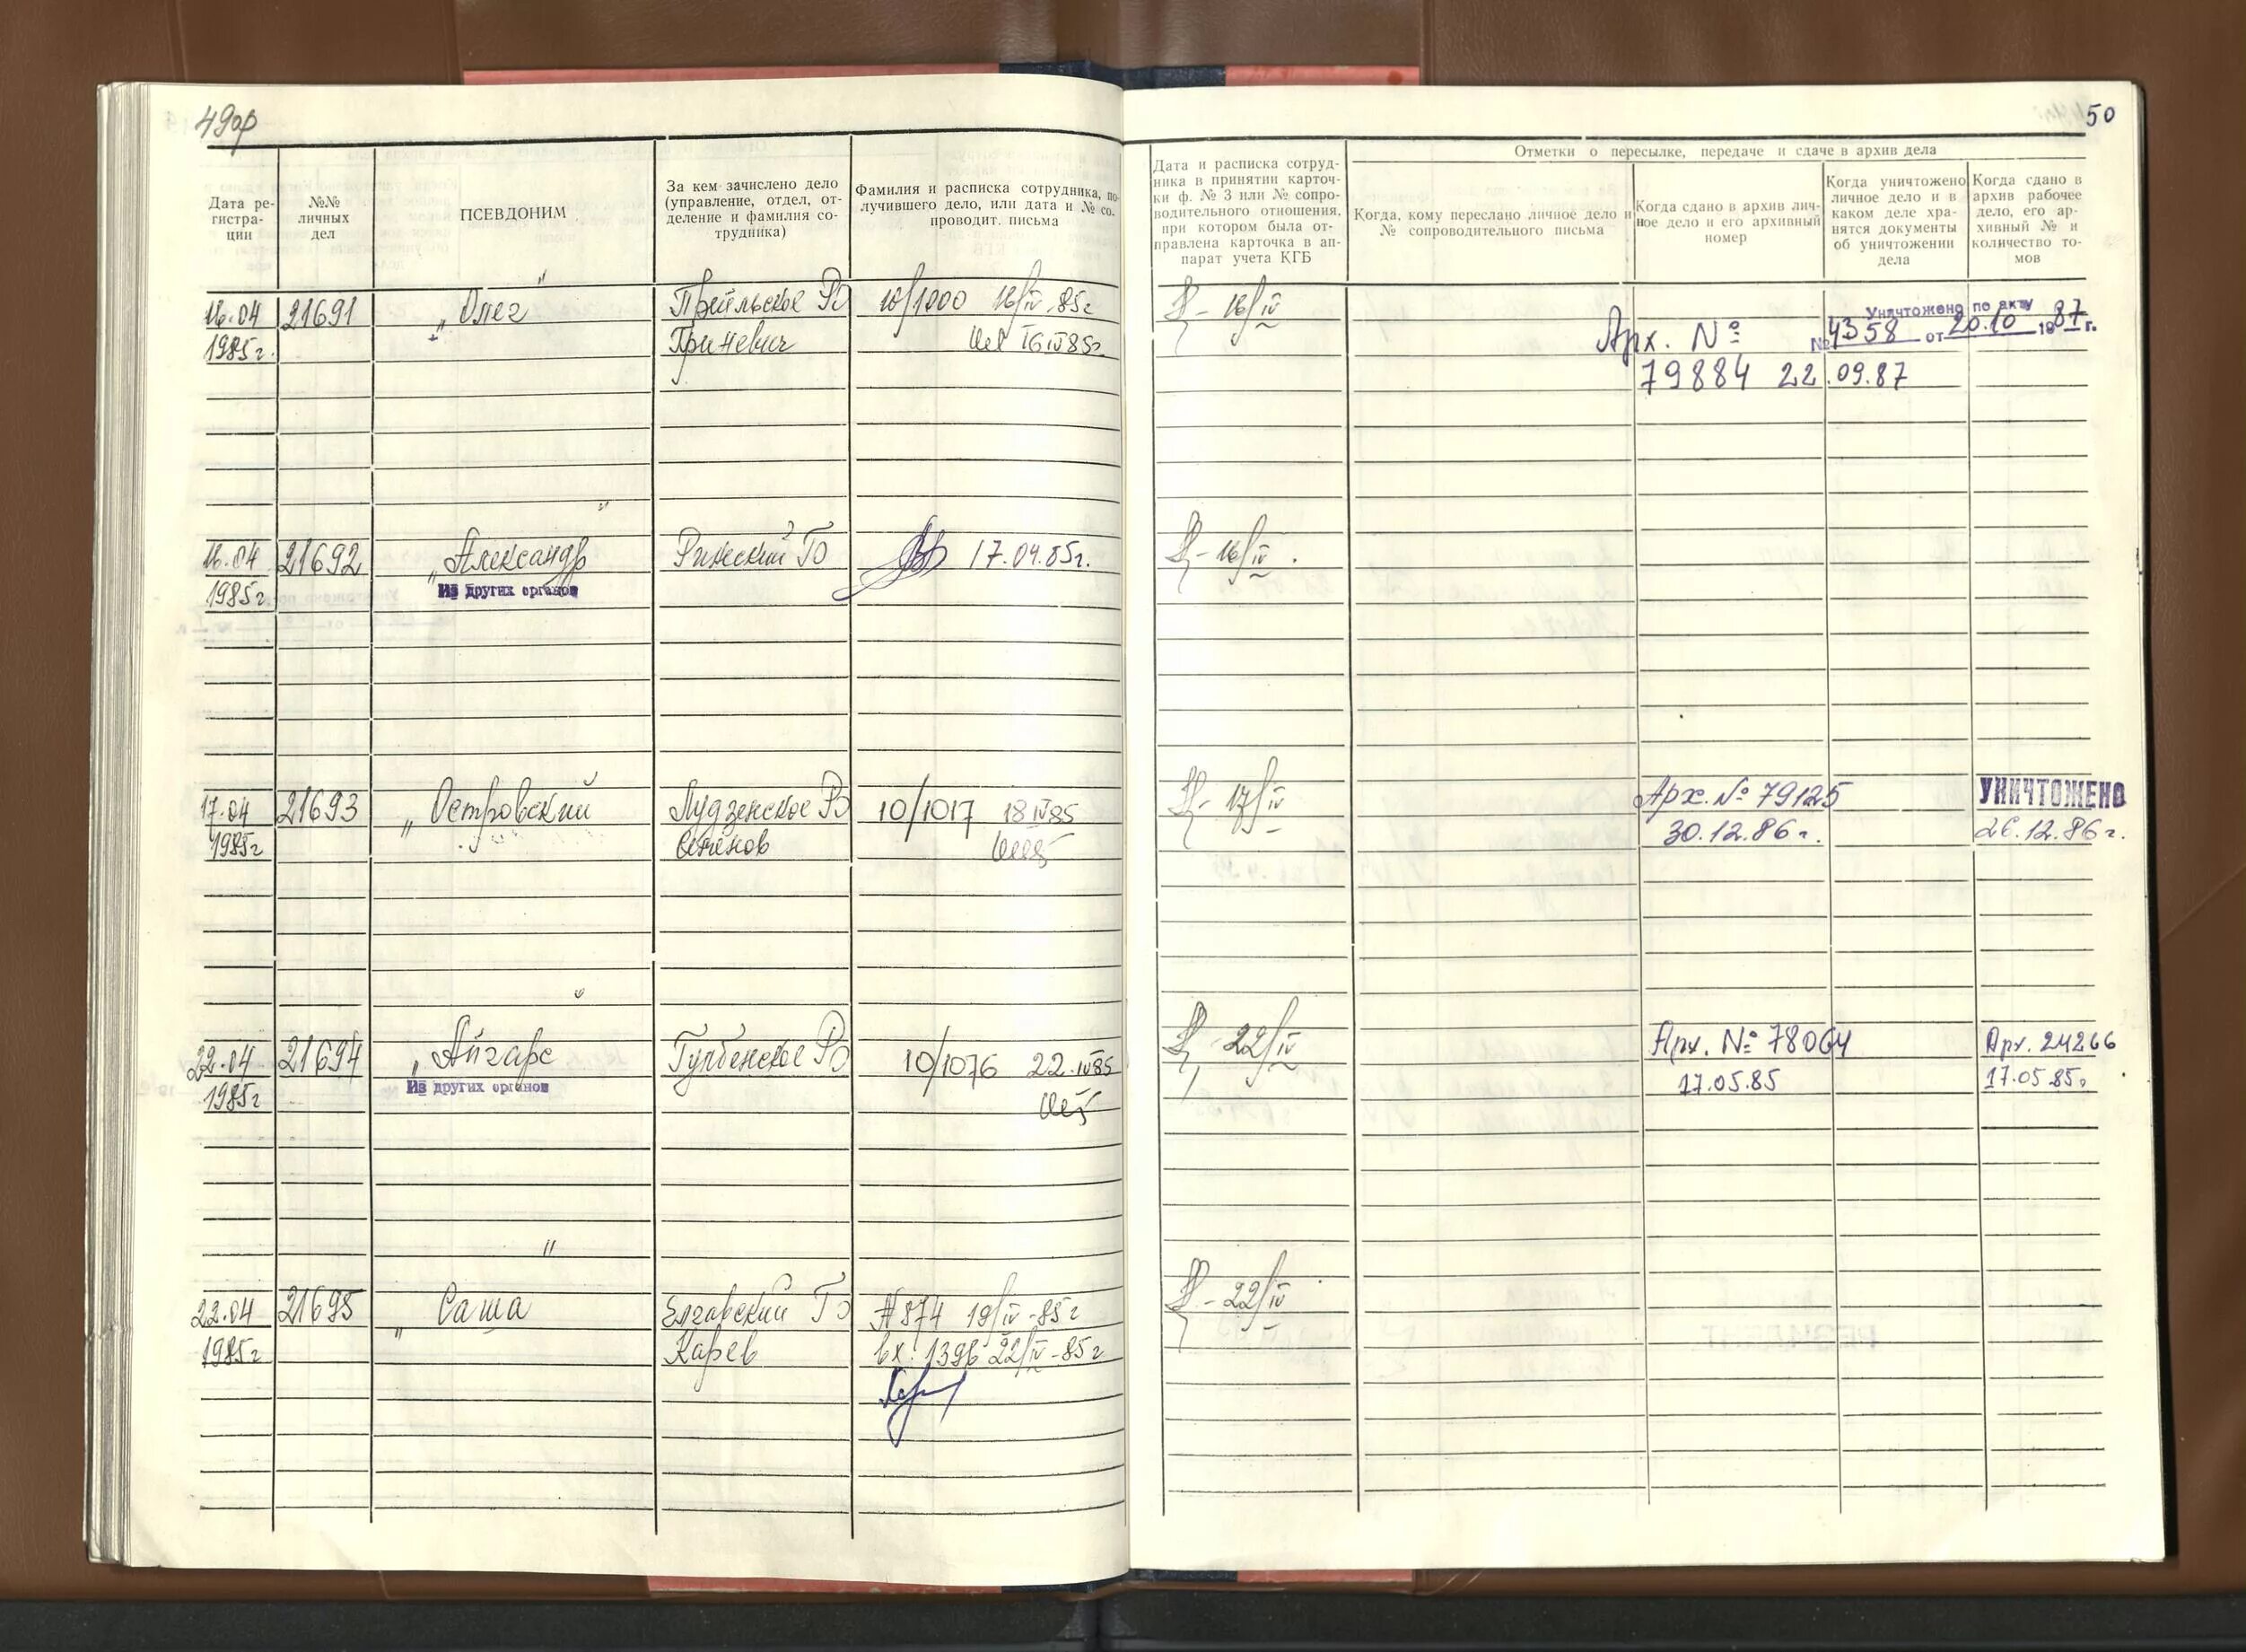 49об
50
Дата ре-
гистра-
ции
№№
личных
дел
ПСЕВДОНИМ
За кем зачислено дело
(управление, отдел, от-
деление и фамилия со-
трудника)
Фамилия и расписка сотрудника, по-
лучившего дело, или дата и № со-
проводит. письма
Дата и расписка сотруд-
ника в принятии карточ-
ки ф. № 3 или № сопро-
водительного отношения,
при котором была от-
правлена карточка в ап-
парат учета КГБ
Отметки о пересылке, передаче и сдаче в архив дела
Когда, кому переслано личное дело и
№ сопроводительного письма
Когда сдано в архив лич-
ное дело и его архивный
номер
Когда уничтожено
личное дело и в
каком деле хра-
нятся документы
об уничтожении
дела
Когда сдано в
архив рабочее
дело, его ар-
хивный № и
количество то-
мов
16.04 21691 „Олег" Прейльское РО 10/1000 16/IV-85г 16/IV
1985г. Гриневич 16 IV 85г.
Уничтожено по акту
Арх. № №4358 от 20.10 1987 г.
79884 22.09.87
16.04 21692 „Александр" Рижский ГО 17.04.85г. 16/IV.
1985г. Из других органов
17.04 21693 „Островский" Лудзенское РО 10/1017 18 IV 85 17/IV Арх. № 79125 УНИЧТОЖЕНО
1985г Семёнов 30.12.86г. 26.12.86г.
22.04 21694 „Айгарс" Гулбенское РО 10/1076 22.IV 85 22/IV Арх. № 78064 Арх. 24266
1985г Из других органов 17.05.85 17.05.85г
22.04 21695 „Саша" Елгавский ГО № 874 19/IV-85г 22/IV
1985г. Карев вх. 1396 22/IV-85г